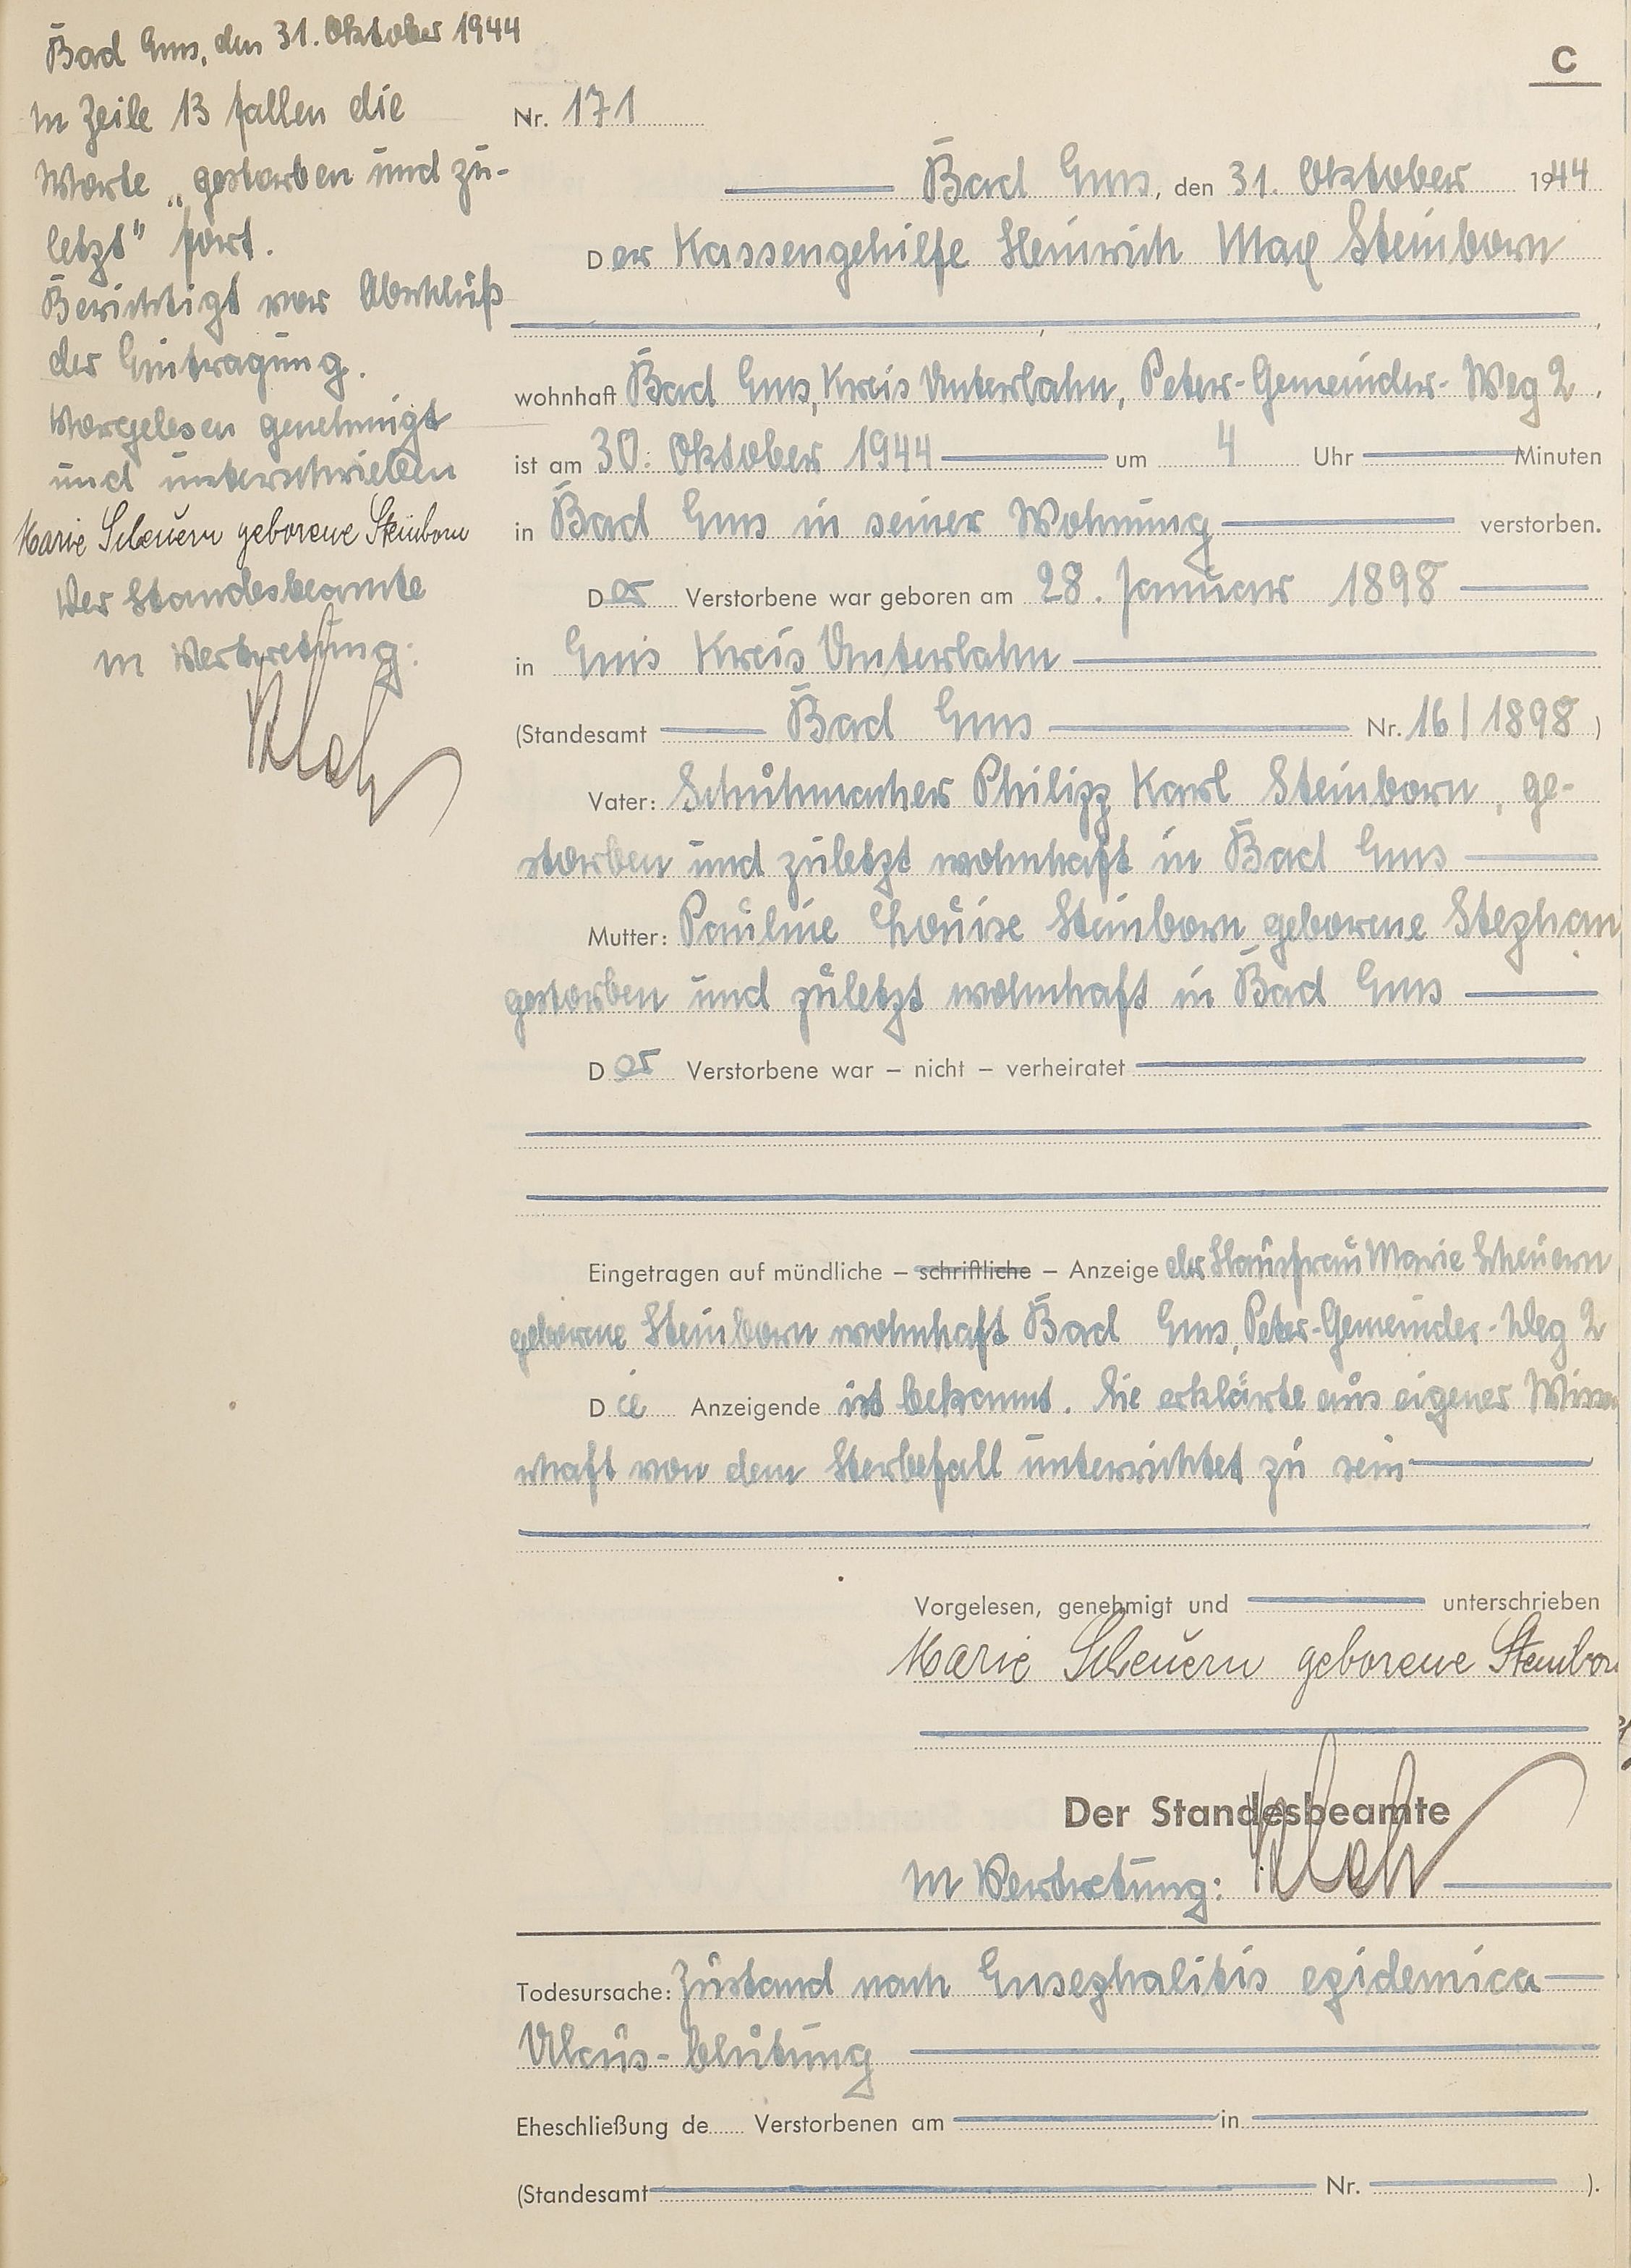 Bad Ems, den 31. Oktober 1944
In Zeile 13 fallen die
Worte „gestorben und zu-
letzt" fort.
Berichtigt vor Abschluß
der Eintragung.
Vorgelesen genehmigt
und unterschrieben
Marie Scheuern geborene Steinborn
Der Standesbeamte
In Vertretung:
C
Nr. 171
Bad Ems, den 31. Oktober 1944
Der Kassengehilfe Heinrich Max Steinborn
wohnhaft Bad Ems, Kreis Unterlahn, Peter-Gemeinder-Weg 2,
ist am 30. Oktober 1944 um 4 Uhr Minuten
in Bad Ems in seiner Wohnung verstorben.
Der Verstorbene war geboren am 28. Januar 1898
in Ems Kreis Unterlahn
(Standesamt Bad Ems Nr. 16/1898)
Vater: Schuhmacher Philipp Karl Steinborn, ge-
storben und zuletzt wohnhaft in Bad Ems
Mutter: Pauline Louise Steinborn geborene Stephan
gestorben und zuletzt wohnhaft in Bad Ems
Der Verstorbene war – nicht – verheiratet
Eingetragen auf mündliche – schriftliche – Anzeige der Hausfrau Marie Scheuern
geborene Steinborn wohnhaft Bad Ems, Peter-Gemeinder-Weg 2
Die Anzeigende ist bekannt. Sie erklärte aus eigener Wissen
schaft von dem Sterbefall unterrichtet zu sein
Vorgelesen, genehmigt und unterschrieben
Marie Scheuern geborene Steinborn
Der Standesbeamte
In Vertretung:
Todesursache: Zustand nach Ensephalitis epidemica
Ulcus-blutung
Eheschließung de Verstorbenen am in
(Standesamt Nr. ).